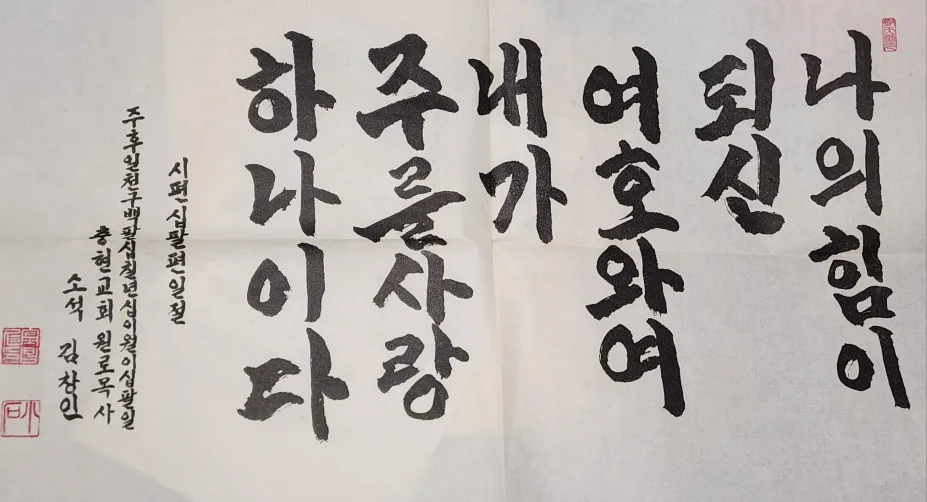 나의힘이
되신
여호와여
내가
주를사랑
하나이다
시편십팔편일절
주후일천구백팔십칠년십이월이십팔일
충현교회원로목사
소석 김창인